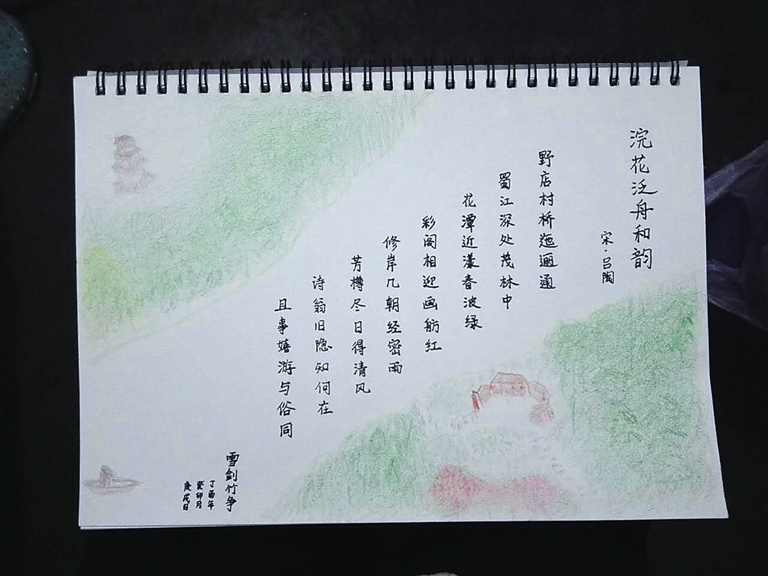 浣花泛舟和韵
宋·吕陶
野店村桥迤逦通
蜀江深处茂林中
花潭近漾春波绿
彩阁相迎画舫红
修岸几朝经密雨
芳樽尽日得清风
诗翁旧隐知何在
且事嬉游与俗同
雪剑竹争
丁酉年
癸卯月
庚戌日